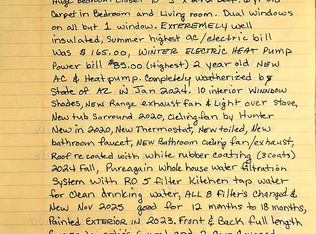 Carpet in Bedroom and Living room. Dual windows
on all but 1 window. EXTREMELY well
insulated, Summer highest ac/electric bill
was $165.00, WINTER ELECTRIC HEAT PUMP
Power bill $89.00 (Highest) 2 year old New
AC & Heat pump. Completely weatherized by
State of AZ in Jan 2024. 10 interior WINNDOW
Shades, New Range exhaust fan & Light over stove,
New tub Sorround 2020, Cieling fan by Hunter
New in 2020, New Thermostat, New toiled, New
bathroom faucet, NEW Bathroom Cieling fan/exhaust,
Roof recoated with white rubber coating (3 coats)
2024 Fall, Pureagain Whole house water filtration
System with RO 5 filter Kitchen tap water
for Clean drinking water, ALL 8 filters Changed &
New Nov 2025 good for 12 months to 18 months,
Painted EXTERIOR IN 2023, Front & Back full length